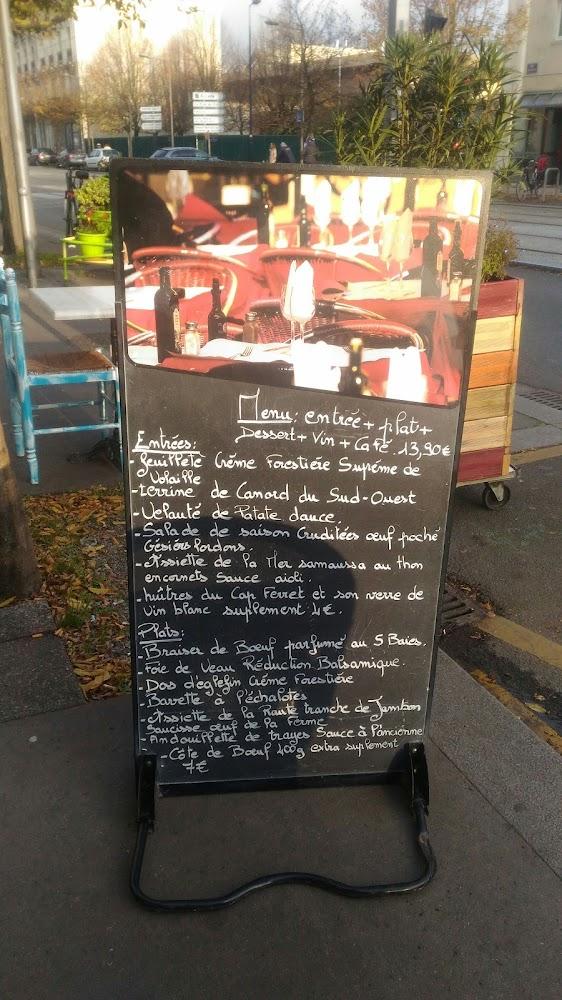 Menu: entrée + plat +
Dessert + Vin + Café. 13,90€
Entrées:
- feuilleté Crème Forestière Suprême de
Volaille
- terrine de Canard du Sud-Ouest
- Velouté de Patate dauce.
- Salade de saison Cruditées œuf poché
Gésiers lardons.
- Assiette de la Mer samoussa au thon
encornets Sauce aioli.
- huîtres du Cap Ferret et son verre de
vin blanc suplement 4€.
Plats:
- Braiser de Bœuf parfumé au 5 Baies.
- Foie de Veau Réduction Balsamique.
- Dos d'eglefin Crème Forestière
- Bavette à l'échalotes
- Assiette de la Haute tranche de Jambon
Saucisse œuf de la Ferme
- Andouillette de troyes Sauce à l'ancienne
- Côte de Bœuf 400g extra suplement
7€